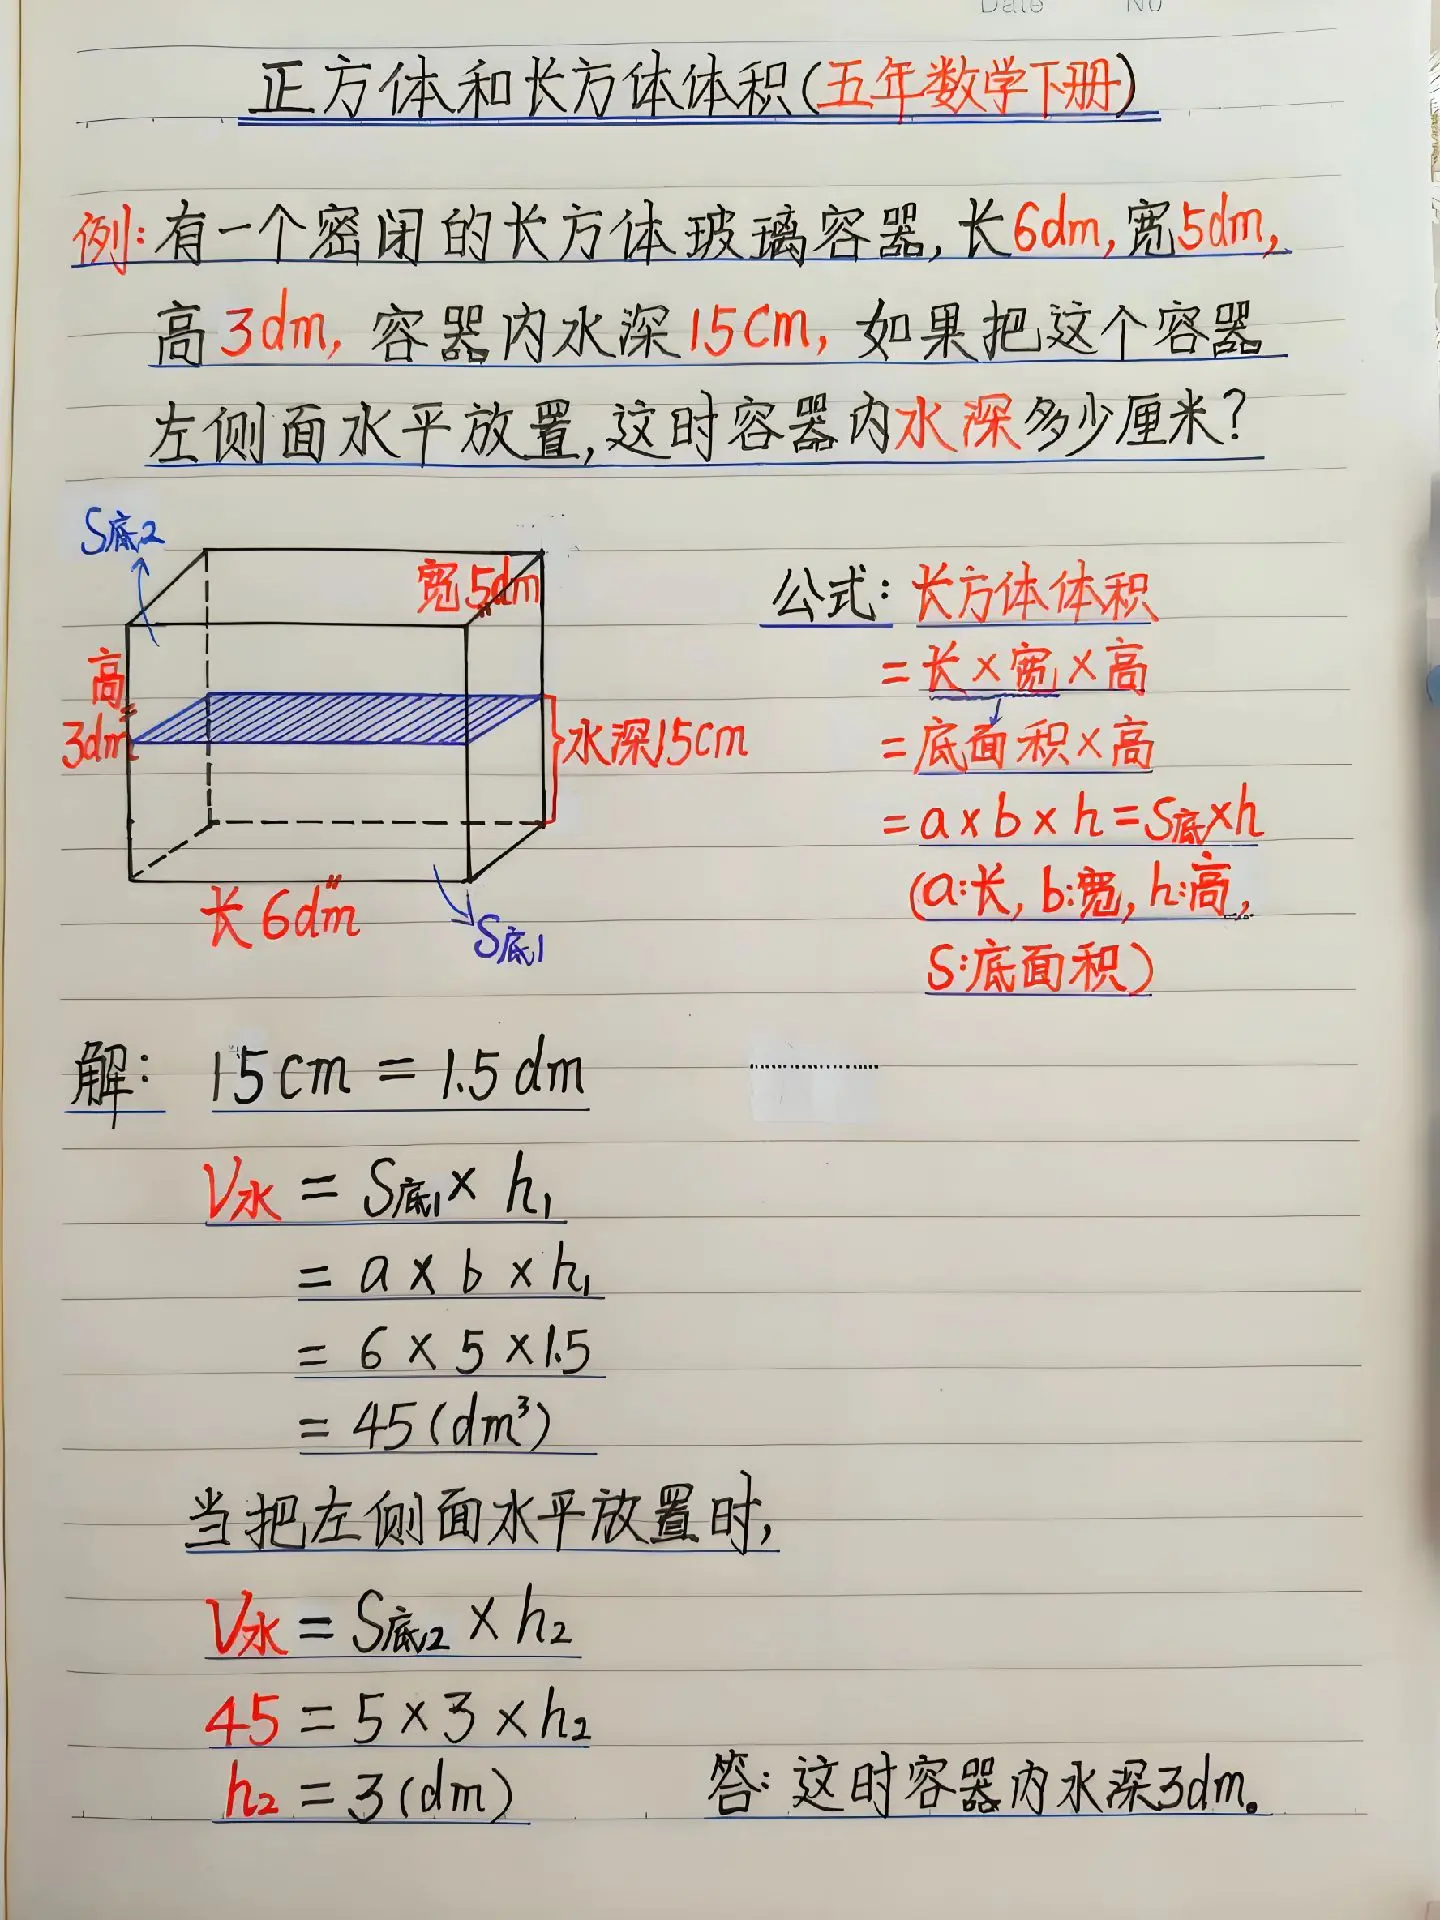 Date No
正方体和长方体体积(五年数学下册)
例:有一个密闭的长方体玻璃容器,长6dm,宽5dm,
高3dm,容器内水深15cm,如果把这个容器
左侧面水平放置,这时容器内水深多少厘米?
S底2
宽5dm
高
3dm
水深15cm
长6dm
S底1
公式:长方体体积
=长×宽×高
=底面积×高
=a×b×h=S底×h
(a:长,b:宽,h:高,
S:底面积)
解: 15cm=1.5dm
V水=S底1×h₁
=a×b×h₁
=6×5×1.5
=45(dm³)
当把左侧面水平放置时,
V水=S底2×h₂
45=5×3×h₂
h₂=3(dm)
答:这时容器内水深3dm。